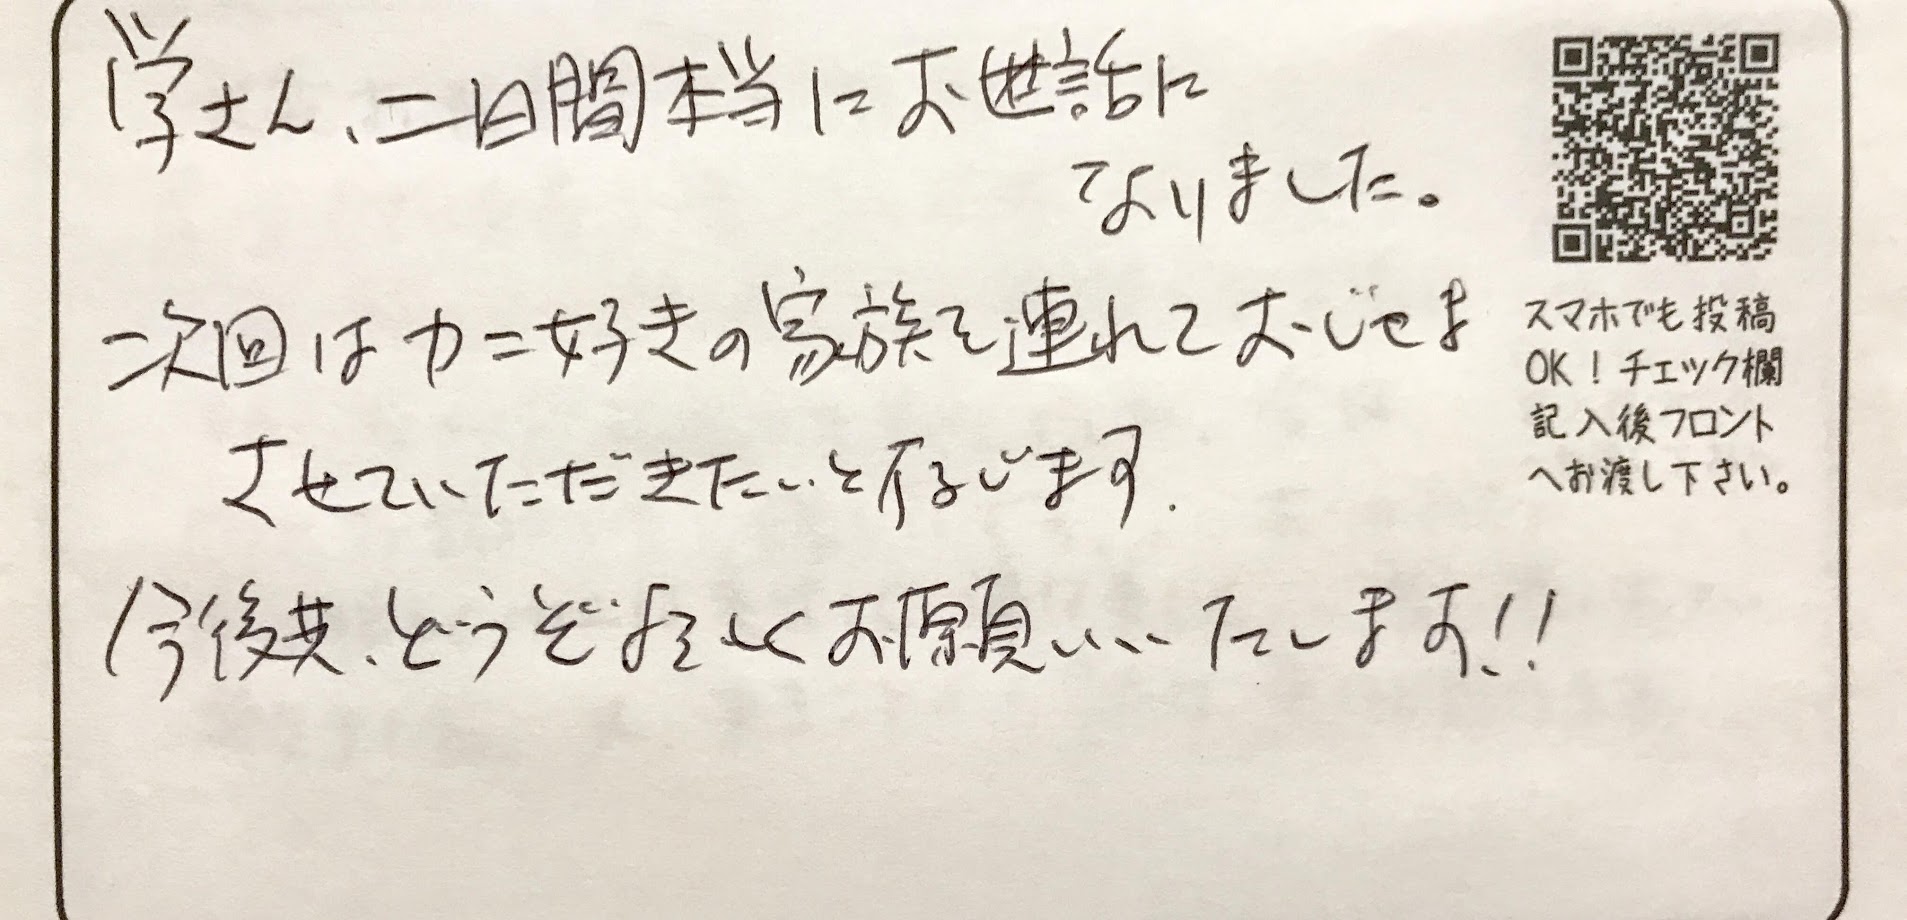 学さん、二日間本当にお世話に
なりました。
次回はカニ好きの家族を連れておじゃま
させていただきたいと存じます.
今後共、どうぞ宜しくお願いいたします!!
スマホでも投稿
OK!チェック欄
記入後フロント
へお渡し下さい。